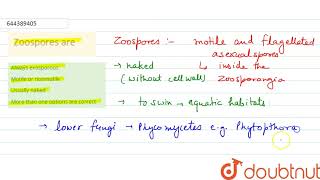 644389405
Zoospores are
Always exosporous
Motile or nonmotile
Usually naked
More than one options are correct
Zoospores :- motile and flagellated
asexual spores
→ naked ↳ inside the
(without cell wall) Zoosporangia
→ to swim → aquatic habitats
→ lower fungi → Phycomycetes e.g. Phytopthora
doubtnut